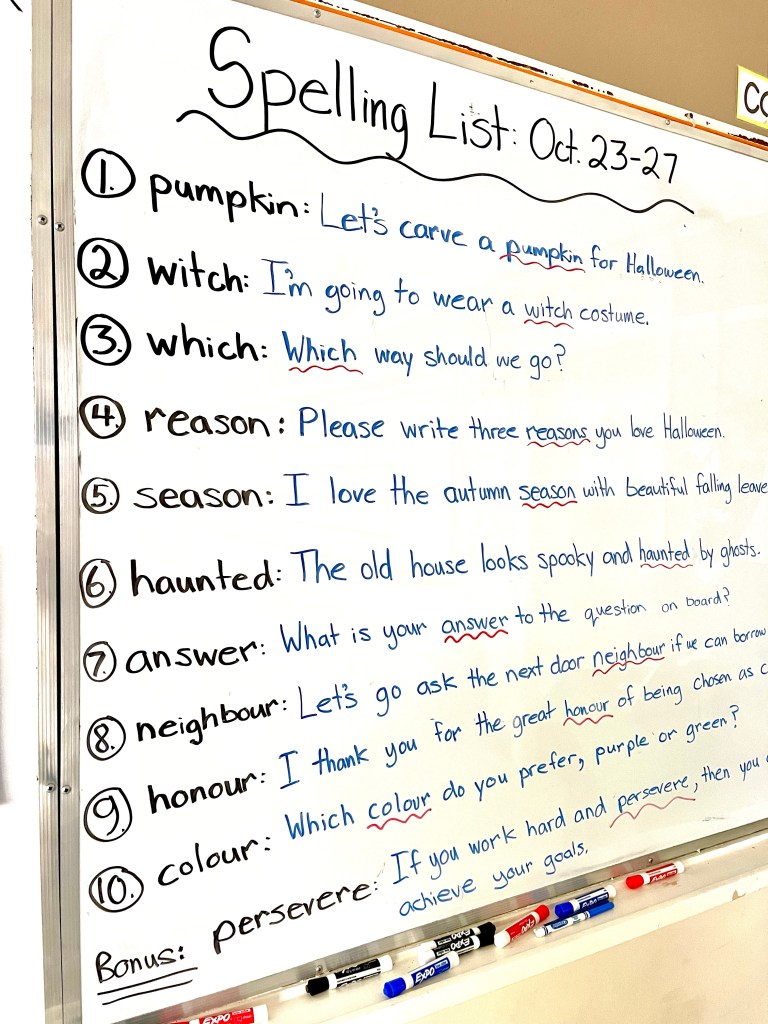 Spelling List: Oct. 23-27
1. pumpkin: Let's carve a pumpkin for Halloween.
2. witch: I'm going to wear a witch costume.
3. which: Which way should we go?
4. reason: Please write three reasons you love Halloween.
5. season: I love the autumn season with beautiful falling leave
6. haunted: The old house looks spooky and haunted by ghosts.
7. answer: What is your answer to the question on board?
8. neighbour: Let's go ask the next door neighbour if we can borrow
9. honour: I thank you for the great honour of being chosen as c
10. colour: Which colour do you prefer, purple or green?
Bonus: persevere: If you work hard and persevere, then you
achieve your goals.
CO
EXPO
EXPO
EXPO
EXPO
EXPO